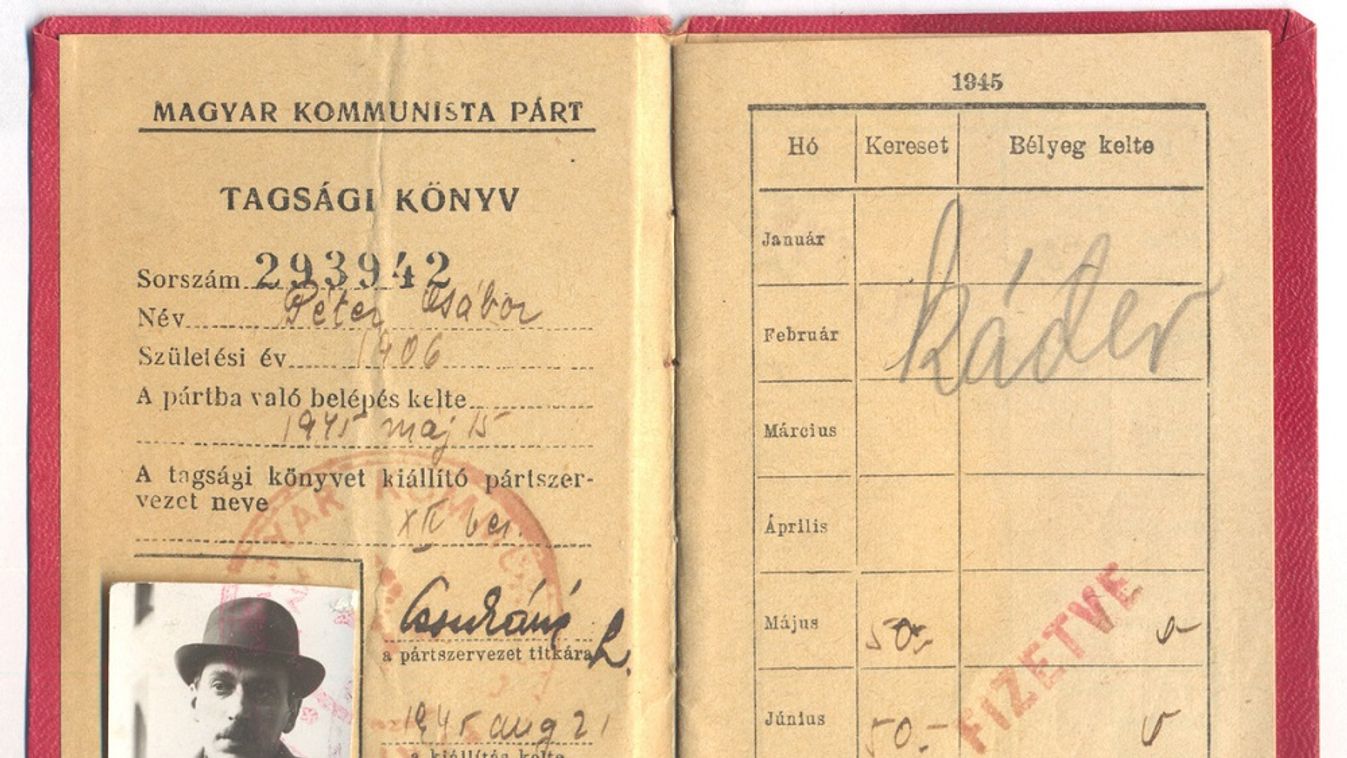 MAGYAR KOMMUNISTA PÁRT
TAGSÁGI KÖNYV
Sorszám 293942
Név Péter Gábor
Születési év 1906
A pártba való belépés kelte
1945 máj 15
A tagsági könyvet kiállító pártszer-
vezet neve
XII ker.
a pártszervezet titkára
1945 aug 21
a kiállítás kelte
1945
Hó Kereset Bélyeg kelte
Január
Február
káder
Március
Április
Május 50.-
Június 50.-
FIZETVE